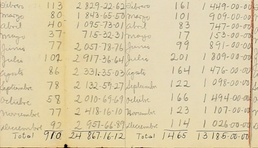 113 2 829-22-62 161 1 449-00-00
Marzo 80 1 843-66-50 Marzo 101 909-00-00
Abril 40 1 095-73-01 Abril 83 747-00-00
Mayo 37 715-32-31 Mayo 17 153-00-00
Junio 77 2 057-78-76 Junio 99 891-00-00
Julio 102 2 917-36-64 Julio 201 1 809-00-00
Agosto 86 2 331-35-03 Agosto 164 1 476-00-00
78 2 132-59-27 122 1 098-00-00
Octubre 58 2 010-69-69 Octubre 166 1 494-00-00
77 2 418-16-10 123 1 107-00-00
Diciembre 97 2 951-66-87 Diciembre 114 1 026-00-00
Total 910 24 867-16-12 Total 1465 13 185-00-00